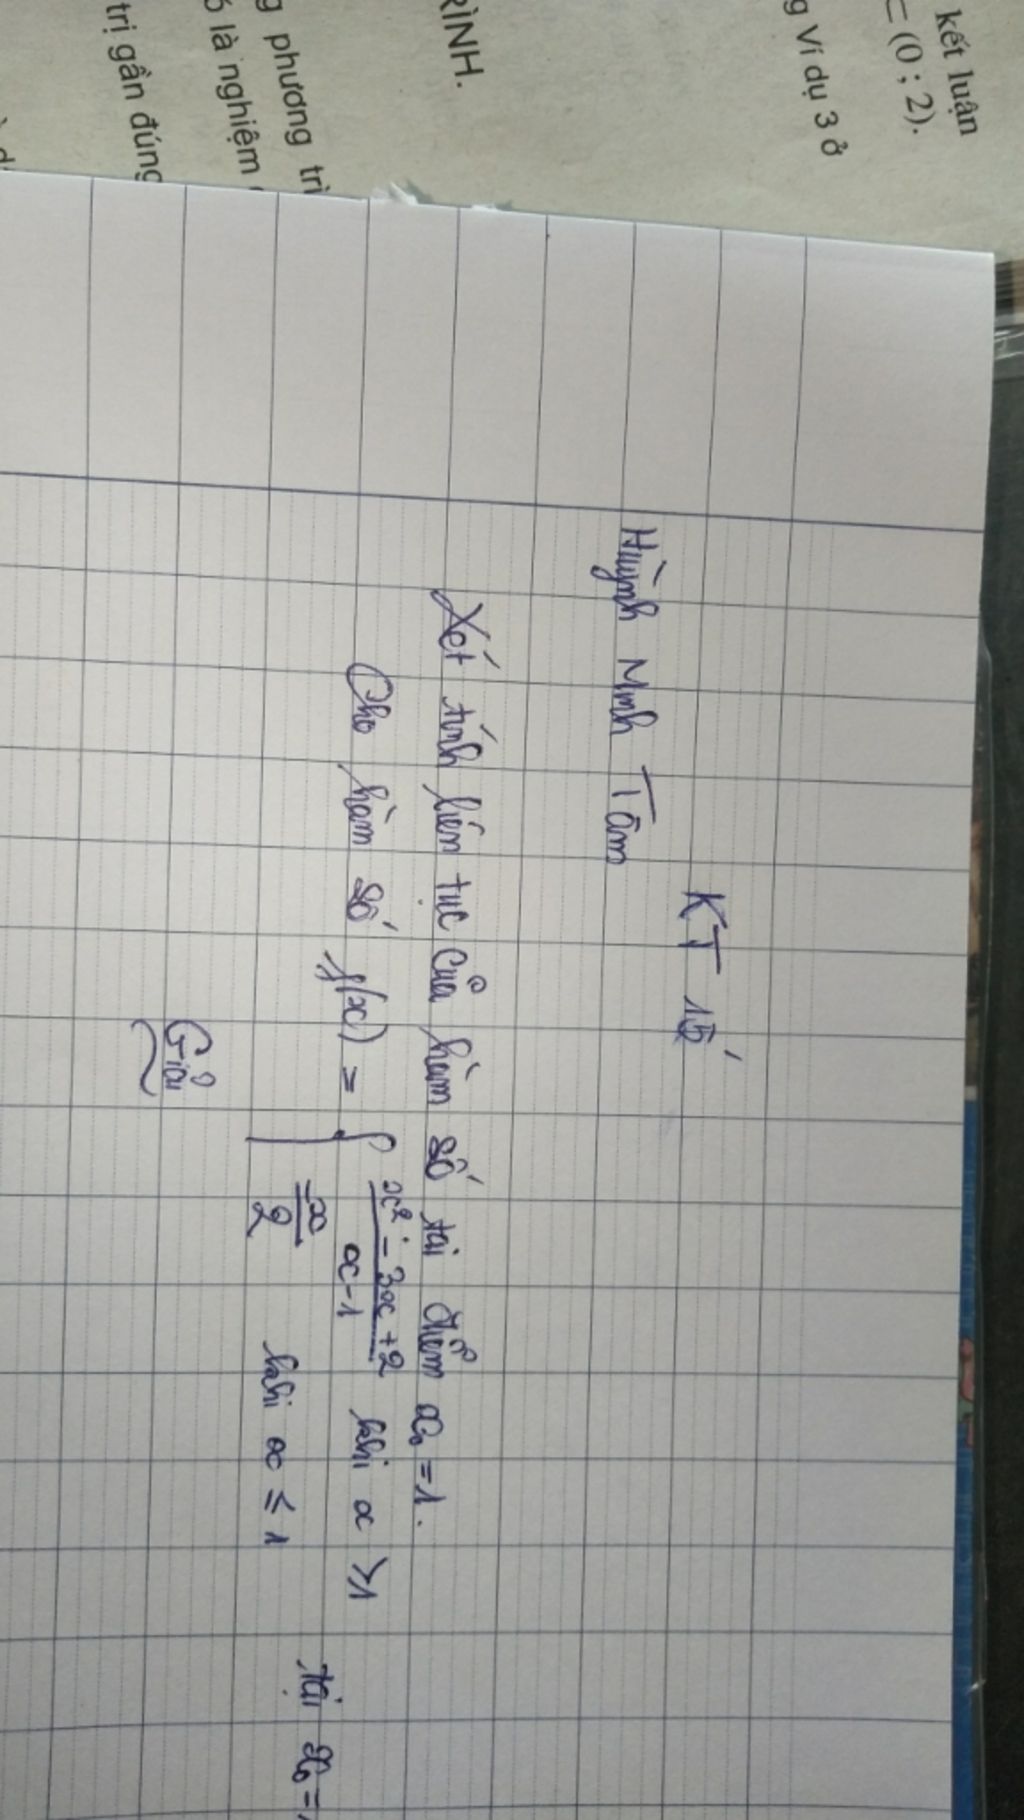 kết luận
⊂ (0 ; 2).
g Ví dụ 3 ở
RÌNH.
g phương trì
ó là nghiệm
trị gần đúng
KT 15'
Huỳnh Minh Tâm
Xét tính liên tục của hàm số tại điểm x₀ = 1.
Cho hàm số f(x) = { x² - 3x + 2 / x - 1 khi x > 1
-x / 2 khi x ≤ 1 tại x₀ = 1
Giải